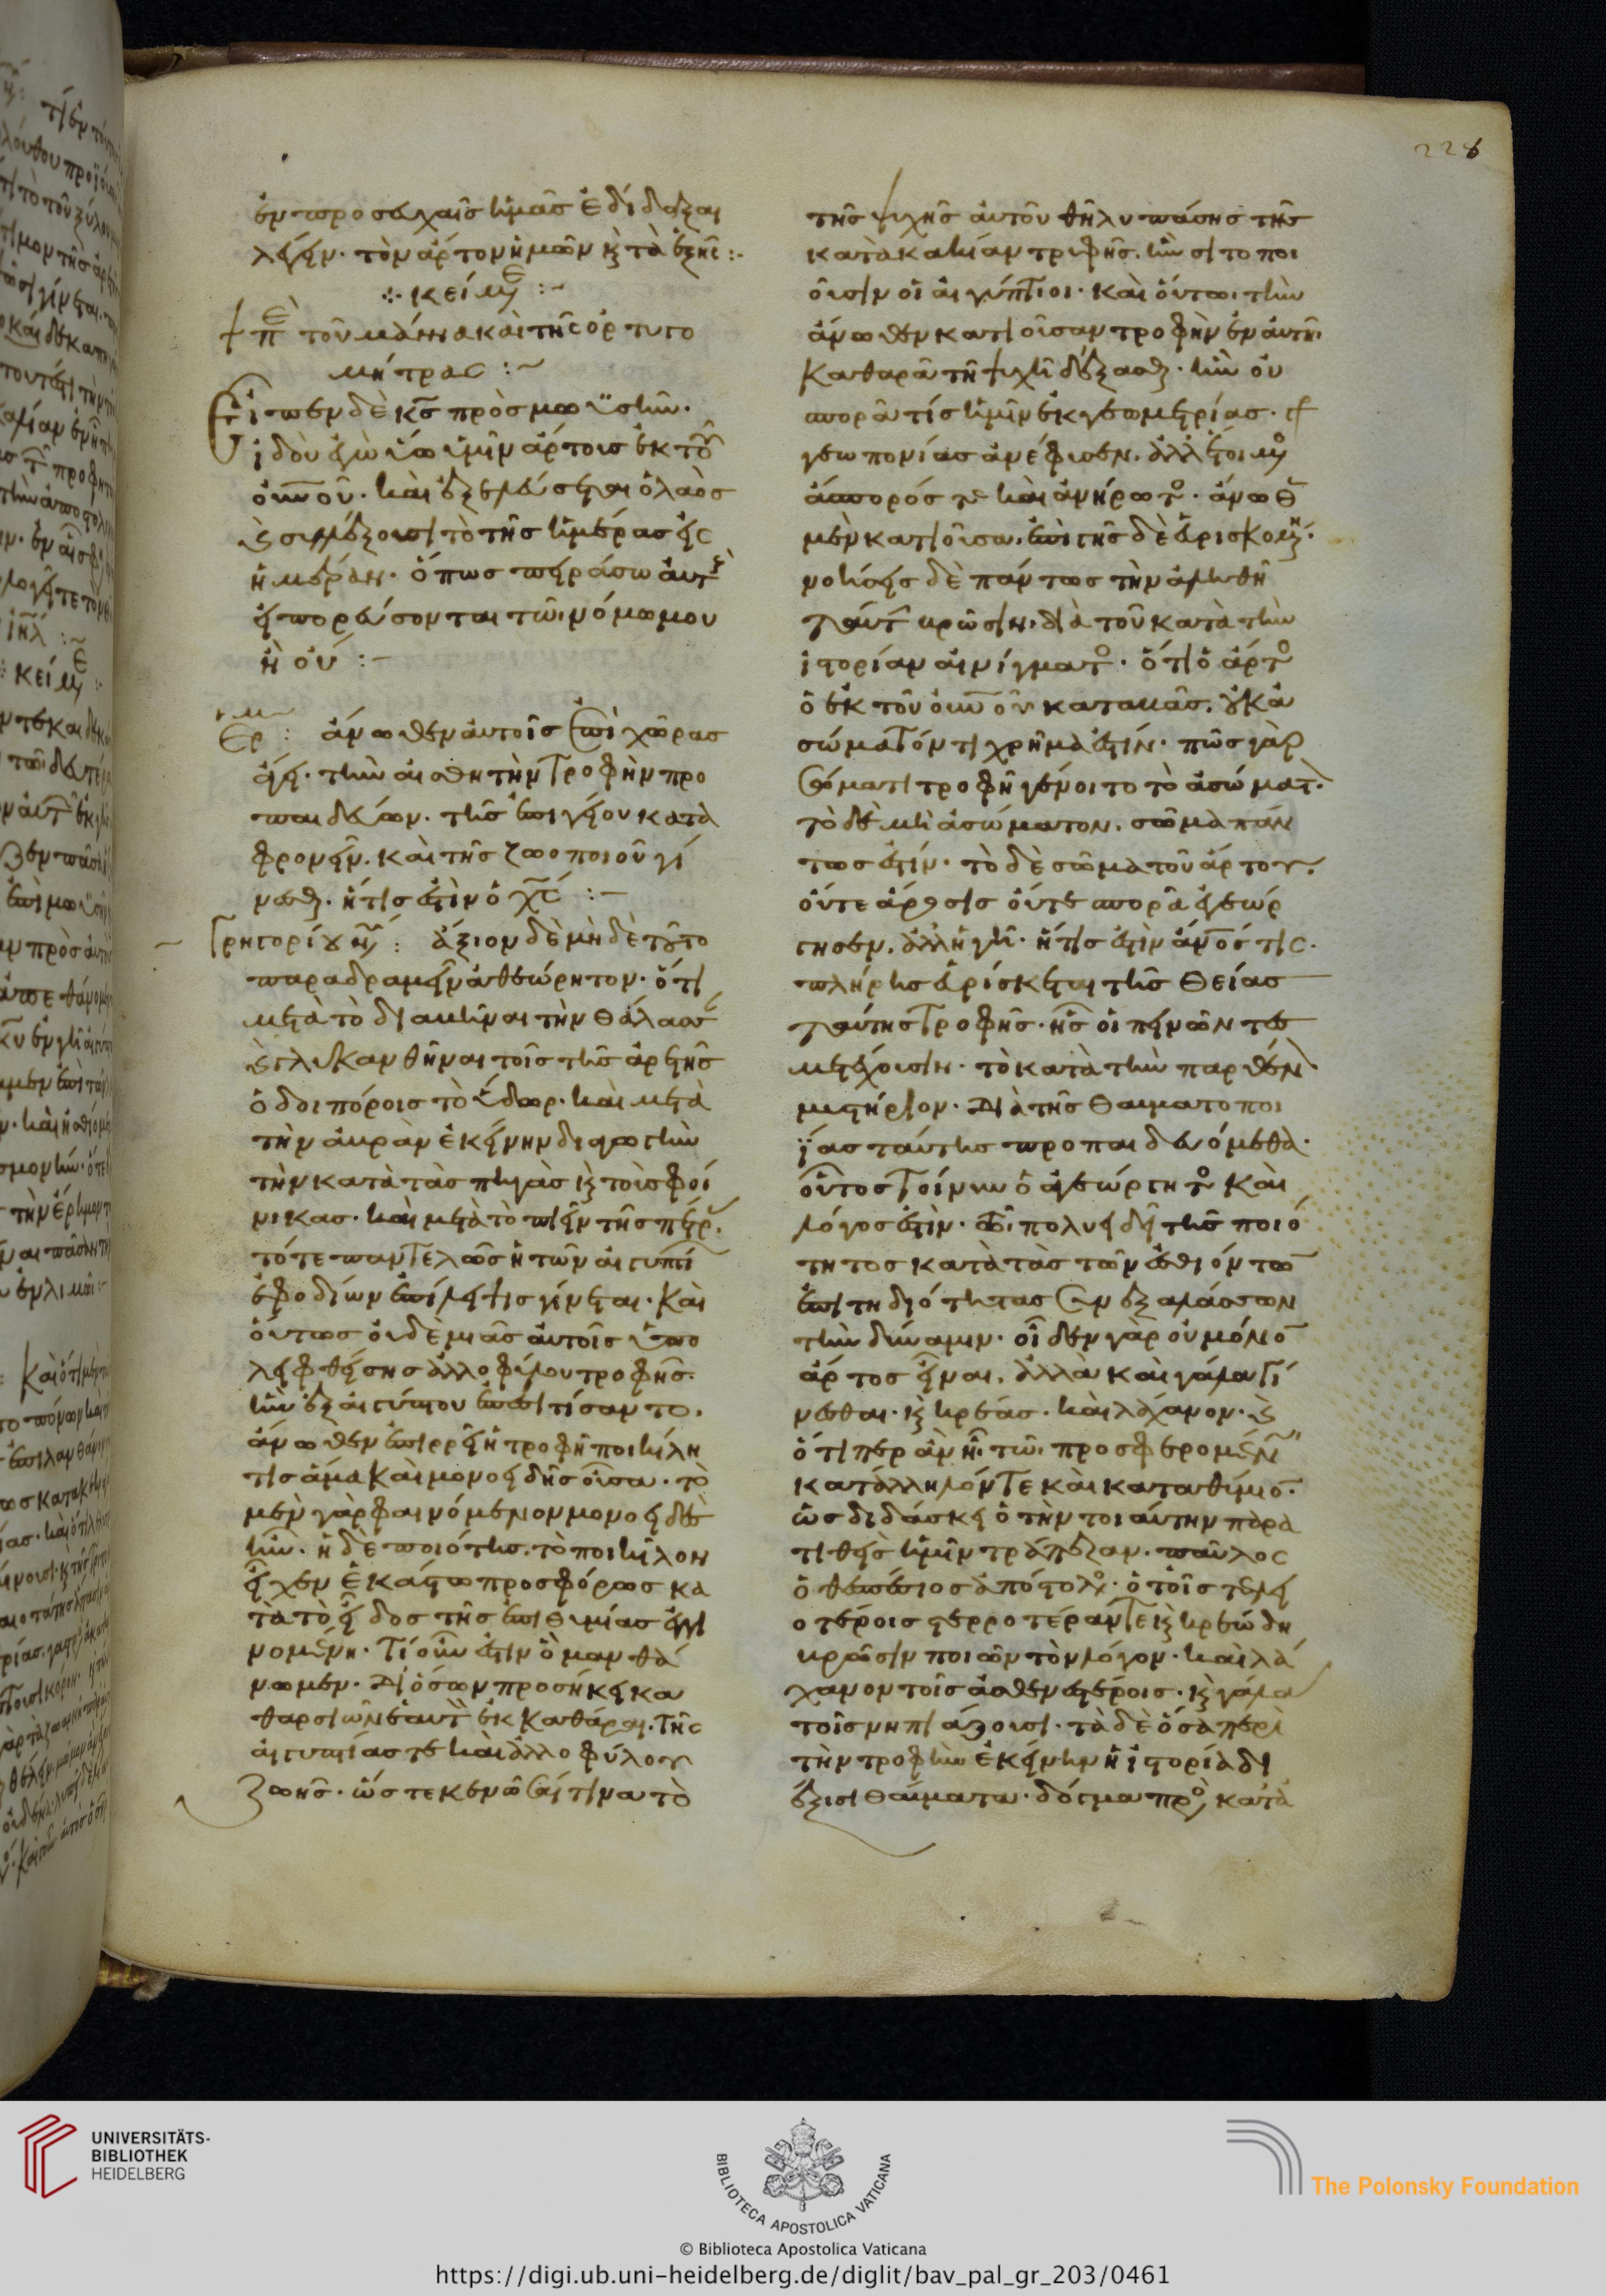 ἐν προσευχαῖς ἡμᾶς ἐδίδαξαι
λέγειν· τὸν ἄρτον ἡμῶν κ τὰ ἑξῆς :-
κείμε :-
πε τοῦ μάννα καὶ τῆς ὀρτυγο
μήτρας :~
Εἶπεν δὲ κς πρὸς μωϋσῆν·
ἰδοὺ ἐγὼ ὕω ὑμῖν ἄρτους ἐκ τοῦ
οὐνοῦ· καὶ ἐξελεύσεται ὁ λαὸς
κ συλλέξουσι τὸ τῆς ἡμέρας εἰς
ἡμέραν· ὅπως πειράσω αὐτ
εἰ πορεύσονται τῶ νόμω μου
ἢ οὔ :-
ἄνωθεν αὐτοῖς ἐπὶ χώρας
ἄγει· τὴν αἰσθητὴν τροφὴν προ
παιδεύων· τῆς ἐπιγείου κατα
φρονεῖν. καὶ τῆς ζωοποιοῦ γί
νεσθ· ἥτις ἐστὶν ὁ χς :-
Γρηγορίου νυ : ἄξιον δὲ μὴ δὲ τοῦτο
παραδραμεῖν ἀθεώρητον· ὅτι
μετὰ τὸ διαβῆναι τὴν θάλασσ
κ γλυκανθῆναι τοῖς τῆς ἀρετῆς
ὁδοιπόροις τὸ ὕδωρ· καὶ μετὰ
τὴν ἁβρὰν ἐκείνην διαγωγὴν
τὴν κατὰ τὰς πηγὰς κ τοὺς φοί
νικας· καὶ μετὰ τὸ πιεῖν τῆς πέτρ
τότε παντελῶς ἡ τῶν αἰγυπτί
ἐφοδίων ἐπίλειψις γίνεται· καὶ
οὕτως οὐδὲ μιᾶς αὐτοῖς ὑπο
λειφθείσης ἀλλοφύλου τροφῆς.
ἣν ἐξ αἰγύπτου ἐπεσιτίσαντο.
ἄνωθεν ἐπιρρεῖ ἡ τροφὴ ποικίλη
τις ἅμα καὶ μονοειδὴς οὖσα· τὸ
μὲν γὰρ φαινόμενον μονοειδὲς
ἦν· ἡ δὲ ποιότης. τὸ ποικίλον
εἶχεν ἑκάστω προσφόρως κα
τὰ τὸ εἶδος τῆς ἐπιθυμίας ἐγγι
νομένη· τί οὖν ἐστιν ὃ μανθά
νωμεν· δι ὅσων προσήκει κα
θαρσίων ἑαυτ ἐκκαθάραι. τῆς
αἰγυπτίας τε καὶ ἀλλοφύλου
ζωῆς· ὥστε κενῶσαί τινα τὸ
228
τῆς ψυχῆς αὐτοῦ θῆλυ πάσης τῆς
κατὰ κακίαν τρυφῆς. ἣν σιτοποι
οῦσιν οἱ αἰγύπτιοι· καὶ οὕτω τὴν
ἄνωθεν κατιοῦσαν τροφὴν ἐν αὐτῆ
καθαρᾶ τῆ ψυχῆ δέξασθ· ἣν οὐ
σπορά τίς ἡμῖν ἐκ γεωμετρίας·
γεωπονίας ἀνέφυσεν. ἀλλ ἕτοιμ
ἄσπορός τε καὶ ἀνήροτ· ἄνωθ
μὲν κατιοῦσα. ἐπὶ γῆς δὲ εὑρισκομ·
νοήσεις δὲ πάντως τὴν ἀληθῆ
ταύτ βρῶσιν. διὰ τοῦ κατὰ τὴν
ἱστορίαν αἰνίγματ· ὅτι ὁ ἄρτ
ὁ ἐκ τοῦ οὐνοῦ καταβὰς. οὐκ ἀ
σώματόν τι χρῆμά ἐστιν· πῶς γὰρ
σώματι τροφὴ γένοιτο τὸ ἀσώματ·
τὸ δὲ μὴ ἀσώματον. σῶμα πάν
τως ἐστίν· τὸ δὲ σῶμα τοῦ ἄρτου.
οὔτε ἄροσις οὔτε σπορὰ ἐγεώρ
γησεν. ἀλλ ἡ γῆ· ἥτις ἐστὶν ἀνός τις.
πλήρης εὑρίσκεται τῆς θείας
ταύτης τροφῆς· ἧς οἱ πεινῶντες
μετέχουσιν· τὸ κατὰ τὴν παρθέν
μυστήριον· διὰ τῆς θαυματοποι
ΐας ταύτης προπαιδευόμεθα·
οὗτος τοίνυν ὁ ἀγεώργητ καὶ
λόγος ἐστὶν· πολυειδεῖ τῆς ποιό
τητος κατὰ τὰς τῶν ἐσθιόντω
ἐπιτηδιότητας συνεξαλάσσων
τὴν δύναμιν· οἶδεν γὰρ οὐ μόνο
ἄρτος εἶναι. ἀλλὰ καὶ γάλα γί
νεσθαι· κ κρέας· καὶ λάχανον· κ
ὅτι περ ἂν ἦ τῶ προσφερομέν
κατάλληλόν τε καὶ καταθύμιο·
ὡς διδάσκει ὁ τὴν τοιαύτην παρα
τιθεὶς ἡμῖν τράπεζαν. παῦλος
ὁ θεσπέσιος ἀπόστολ· ὁ τοῖς τελει
οτέροις στερροτέραν τε κ κρεώδη
βρῶσιν ποιῶν τὸν λόγον· καὶ λά
χανον τοῖς ἀσθενεστέροις· κ γάλα
τοῖς νηπιάζουσι· τὰ δὲ ὅσα περὶ
τὴν τροφὴν ἐκείνην ἡ ἱστορία δι
έξισι θαύματα· δόγμα πρὸ κατὰ
UNIVERSITÄTS-
BIBLIOTHEK
HEIDELBERG
BIBLIOTECA APOSTOLICA VATICANA
The Polonsky Foundation
© Biblioteca Apostolica Vaticana
https://digi.ub.uni-heidelberg.de/diglit/bav_pal_gr_203/0461